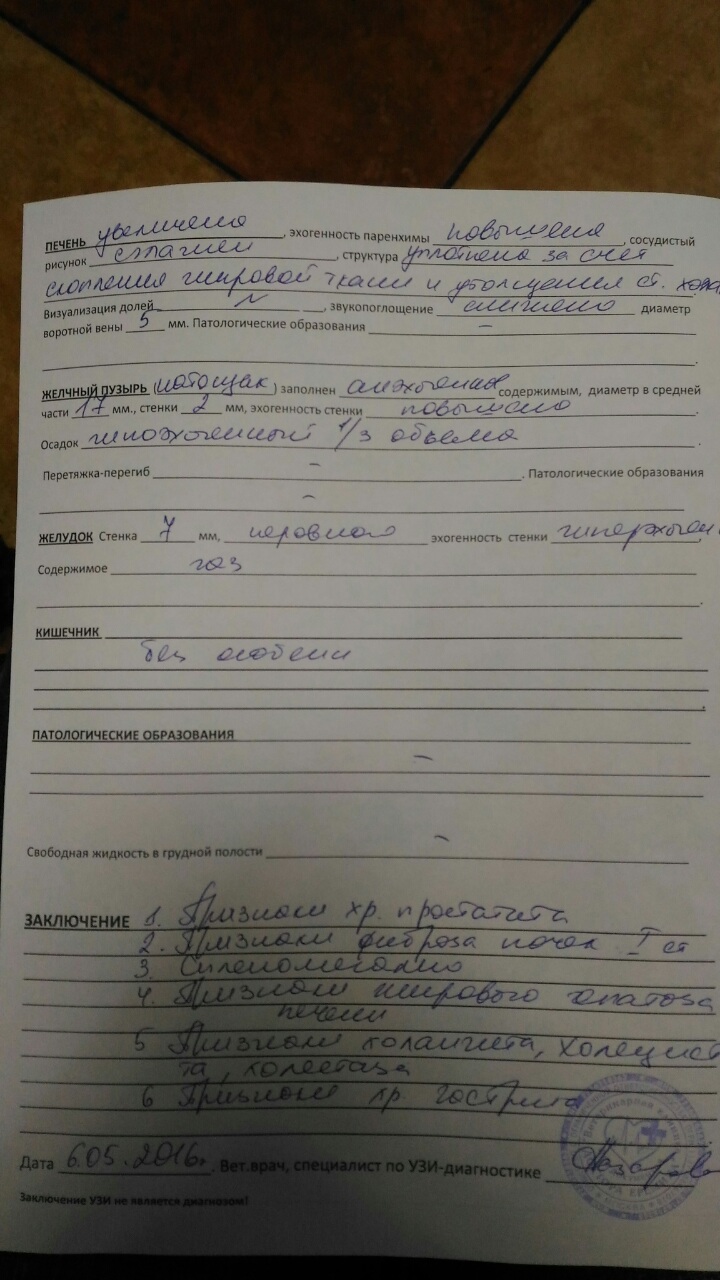 ПЕЧЕНЬ увеличена, эхогенность паренхимы повышена, сосудистый
рисунок сглажен, структура уплотнена за счет
скопления жировой ткани и утолщения ст. хола
Визуализация долей N, звукопоглощение снижено диаметр
воротной вены 5 мм. Патологические образования –
ЖЕЛЧНЫЙ ПУЗЫРЬ (натощак) заполнен анэхогенным содержимым, диаметр в средней
части 17 мм., стенки 2 мм, эхогенность стенки повышена.
Осадок гипоэхогенный 1/3 объема.
Перетяжка-перегиб –. Патологические образования
–
ЖЕЛУДОК Стенка 7 мм, неровная эхогенность стенки гиперэхоген
Содержимое газ
КИШЕЧНИК
без особенн
ПАТОЛОГИЧЕСКИЕ ОБРАЗОВАНИЯ
–
Свободная жидкость в грудной полости –
ЗАКЛЮЧЕНИЕ 1. Признаки хр. простатита
2. Признаки фиброза почек I ст
3. Спленомегалию
4. Признаки жирового гепатоза
печени
5 Признаки холангита, холецист
та, холестаза
6 Признаки хр. гастрита
Дата 6.05.2016г. Вет.врач, специалист по УЗИ-диагностике Назарова
Заключение УЗИ не является диагнозом!